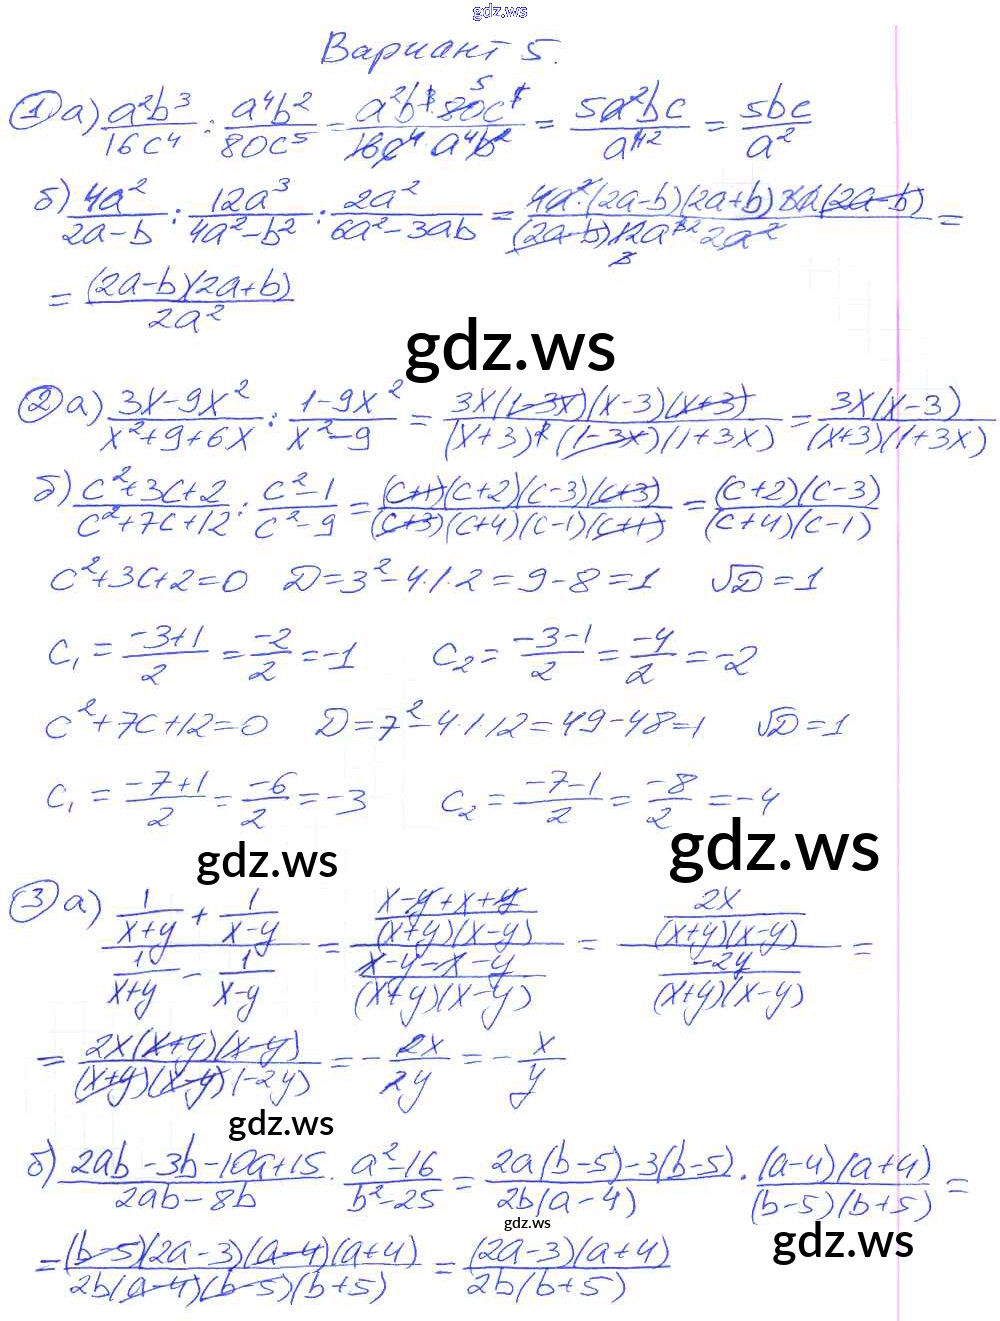 gdz.ws
Вариант 5.
① а) a²b³/16c⁴ : a⁴b²/80c⁵ = a²b³ · 80c⁵/16c⁴ · a⁴b² = 5a²bc/a⁴ = 5bc/a²
б) 4a²/2a-b : 12a³/4a²-b² : 2a²/6a²-3ab = 4a²·(2a-b)(2a+b) 3a(2a-b)/(2a-b) 12a³ 2a² =
= (2a-b)(2a+b)/2a²
gdz.ws
② а) 3x-9x²/x²+9+6x : 1-9x²/x²-9 = 3x(1-3x)(x-3)(x+3)/(x+3)²(1-3x)(1+3x) = 3x(x-3)/(x+3)(1+3x)
б) c²+3c+2/c²+7c+12 : c²-1/c²-9 = (c+1)(c+2)(c-3)(c+3)/(c+3)(c+4)(c-1)(c+1) = (c+2)(c-3)/(c+4)(c-1)
c²+3c+2=0 D=3²-4·1·2=9-8=1 √D=1
c₁ = -3+1/2 = -2/2 = -1 c₂ = -3-1/2 = -4/2 = -2
c²+7c+12=0 D=7²-4·1·12=49-48=1 √D=1
c₁ = -7+1/2 = -6/2 = -3 c₂ = -7-1/2 = -8/2 = -4
gdz.ws
gdz.ws
③ а) (1/x+y + 1/x-y)/(1/x+y - 1/x-y) = (x-y+x+y/(x+y)(x-y))/(x-y-x-y/(x+y)(x-y)) = (2x/(x+y)(x-y))/(-2y/(x+y)(x-y)) =
= 2x(x+y)(x-y)/(x+y)(x-y)(-2y) = - 2x/2y = - x/y
gdz.ws
б) 2ab-3b-10a+15/2ab-8b · a²-16/b²-25 = 2a(b-5)-3(b-5)/2b(a-4) · (a-4)(a+4)/(b-5)(b+5) =
gdz.ws
gdz.ws
= (b-5)(2a-3)(a-4)(a+4)/2b(a-4)(b-5)(b+5) = (2a-3)(a+4)/2b(b+5)